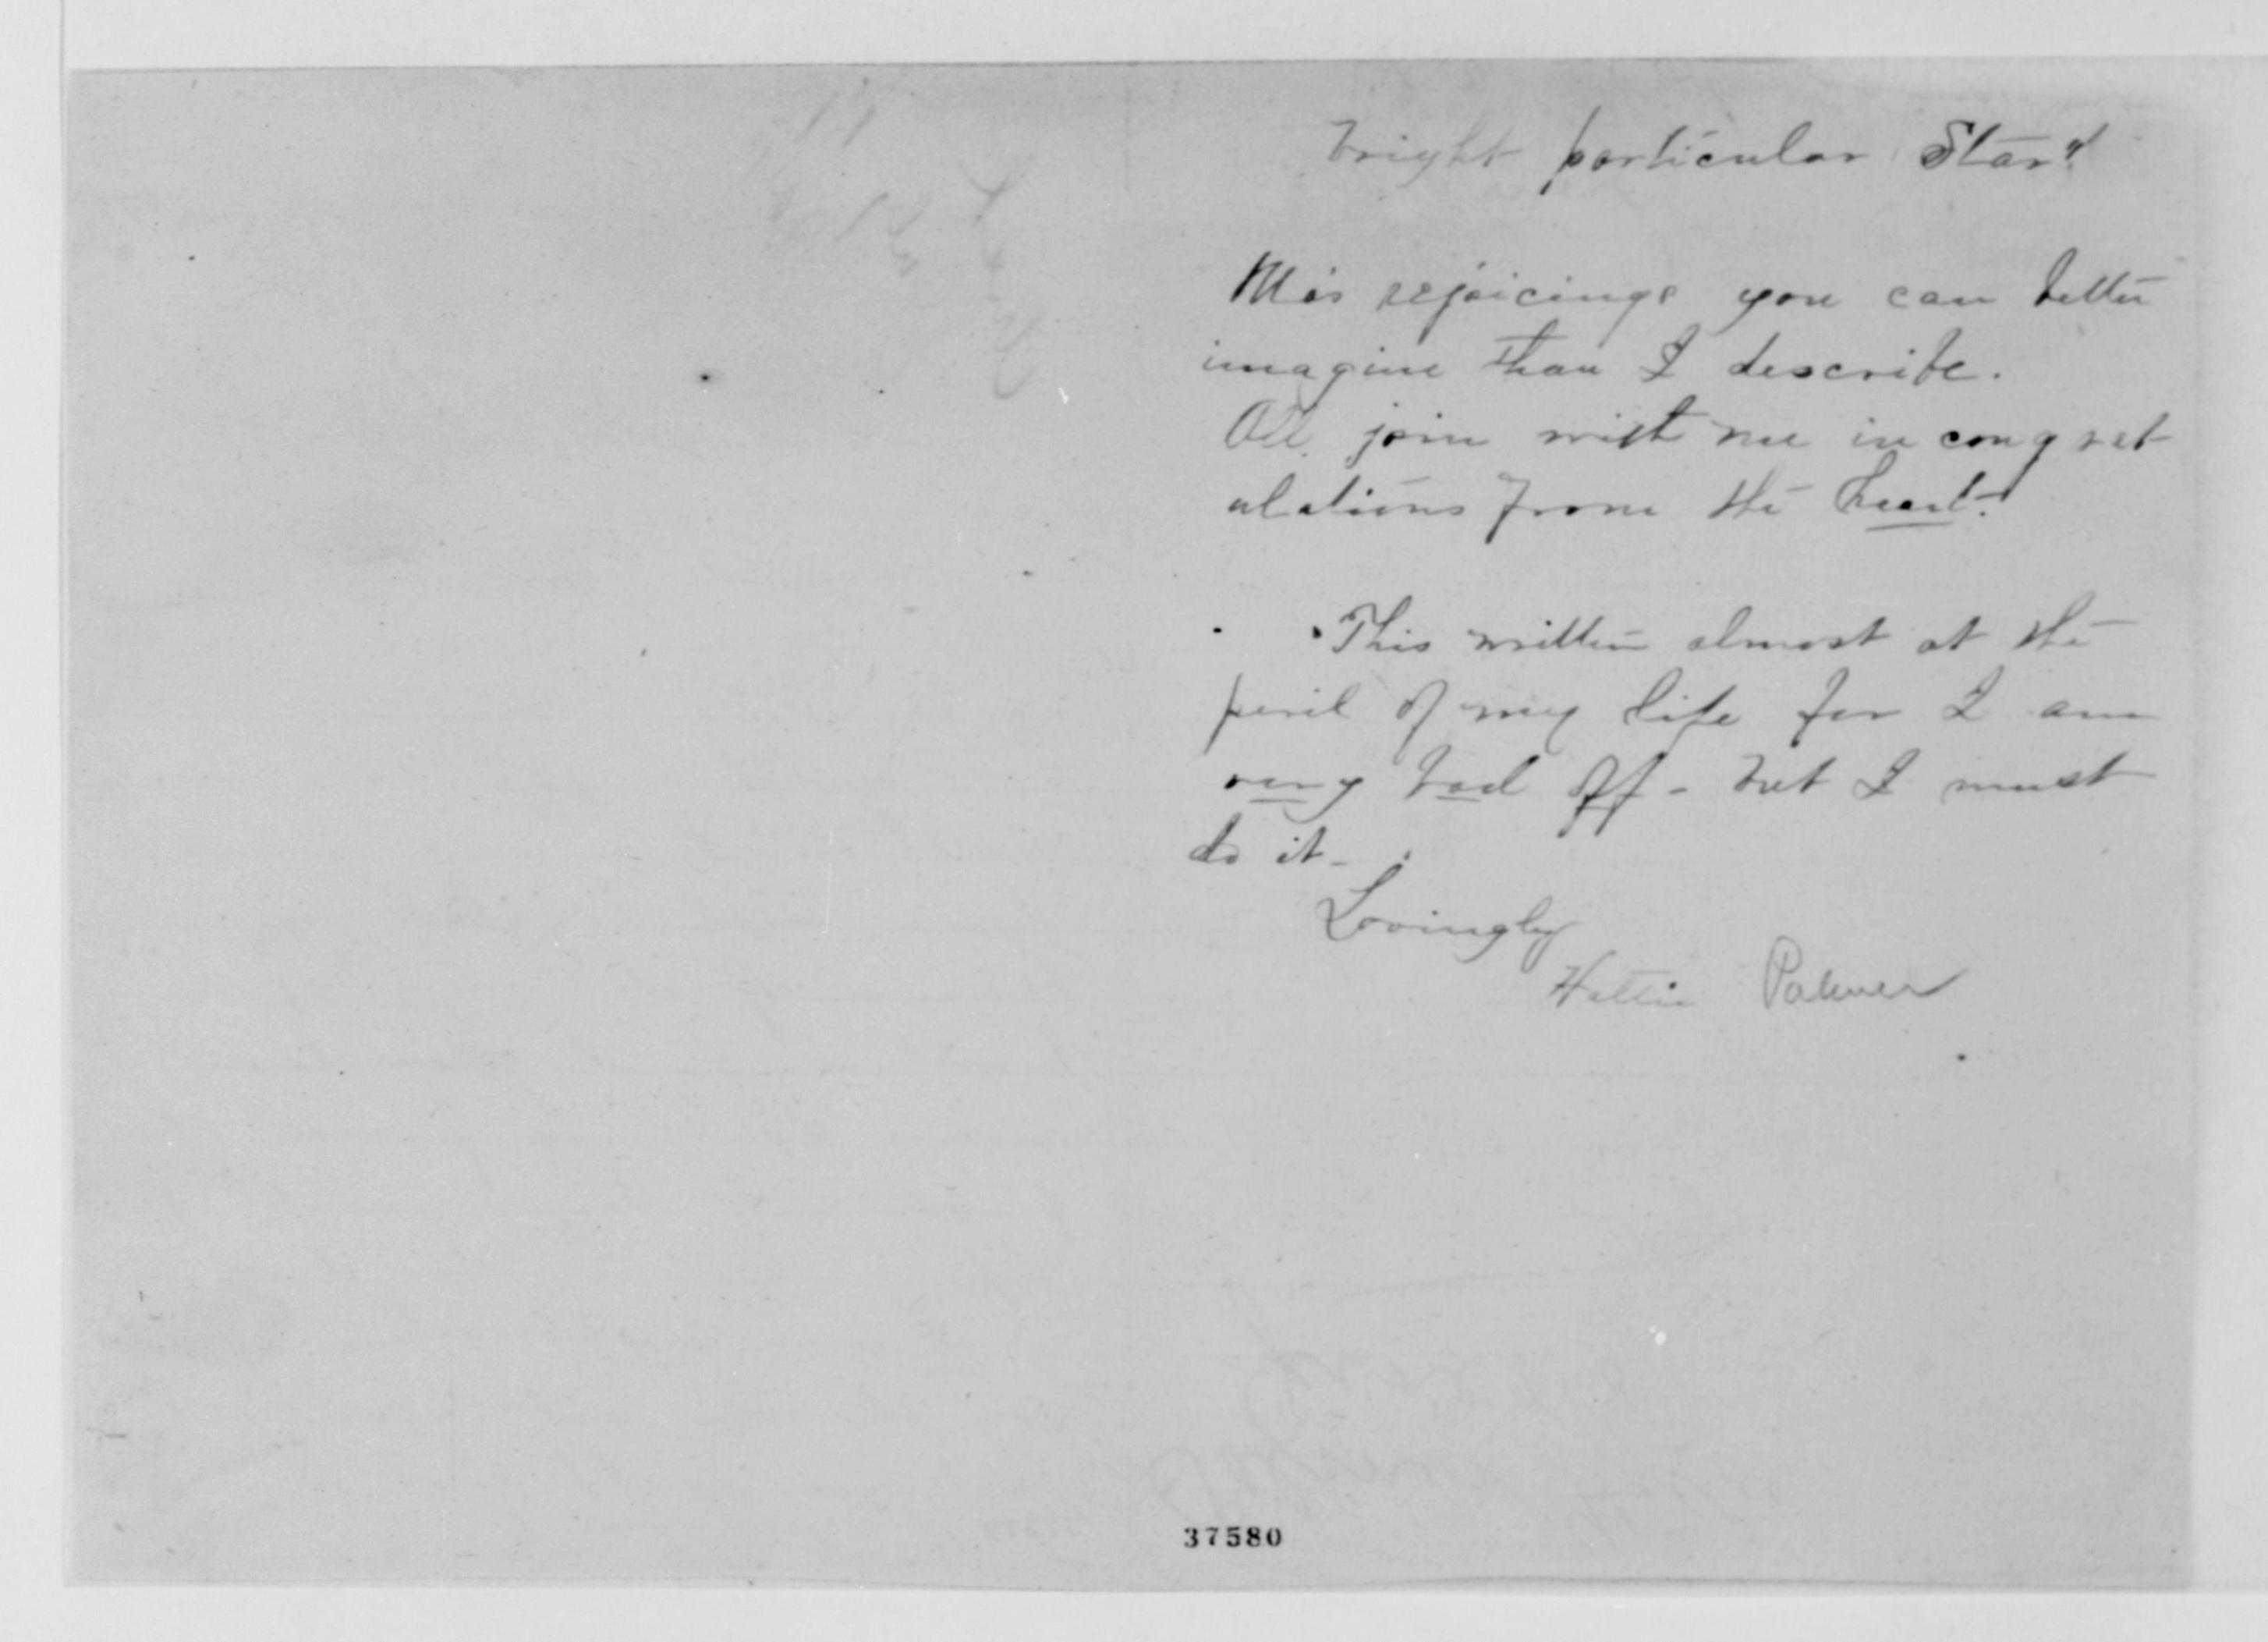 bright particular Star"
Ma's rejoicings you can better
imagine than I describe.
All join with me in congrat
ulations from the heart.
This written almost at the
peril of my life for I am
very bad off - but I must
do it -
Lovingly
Hattie Palmer
37580